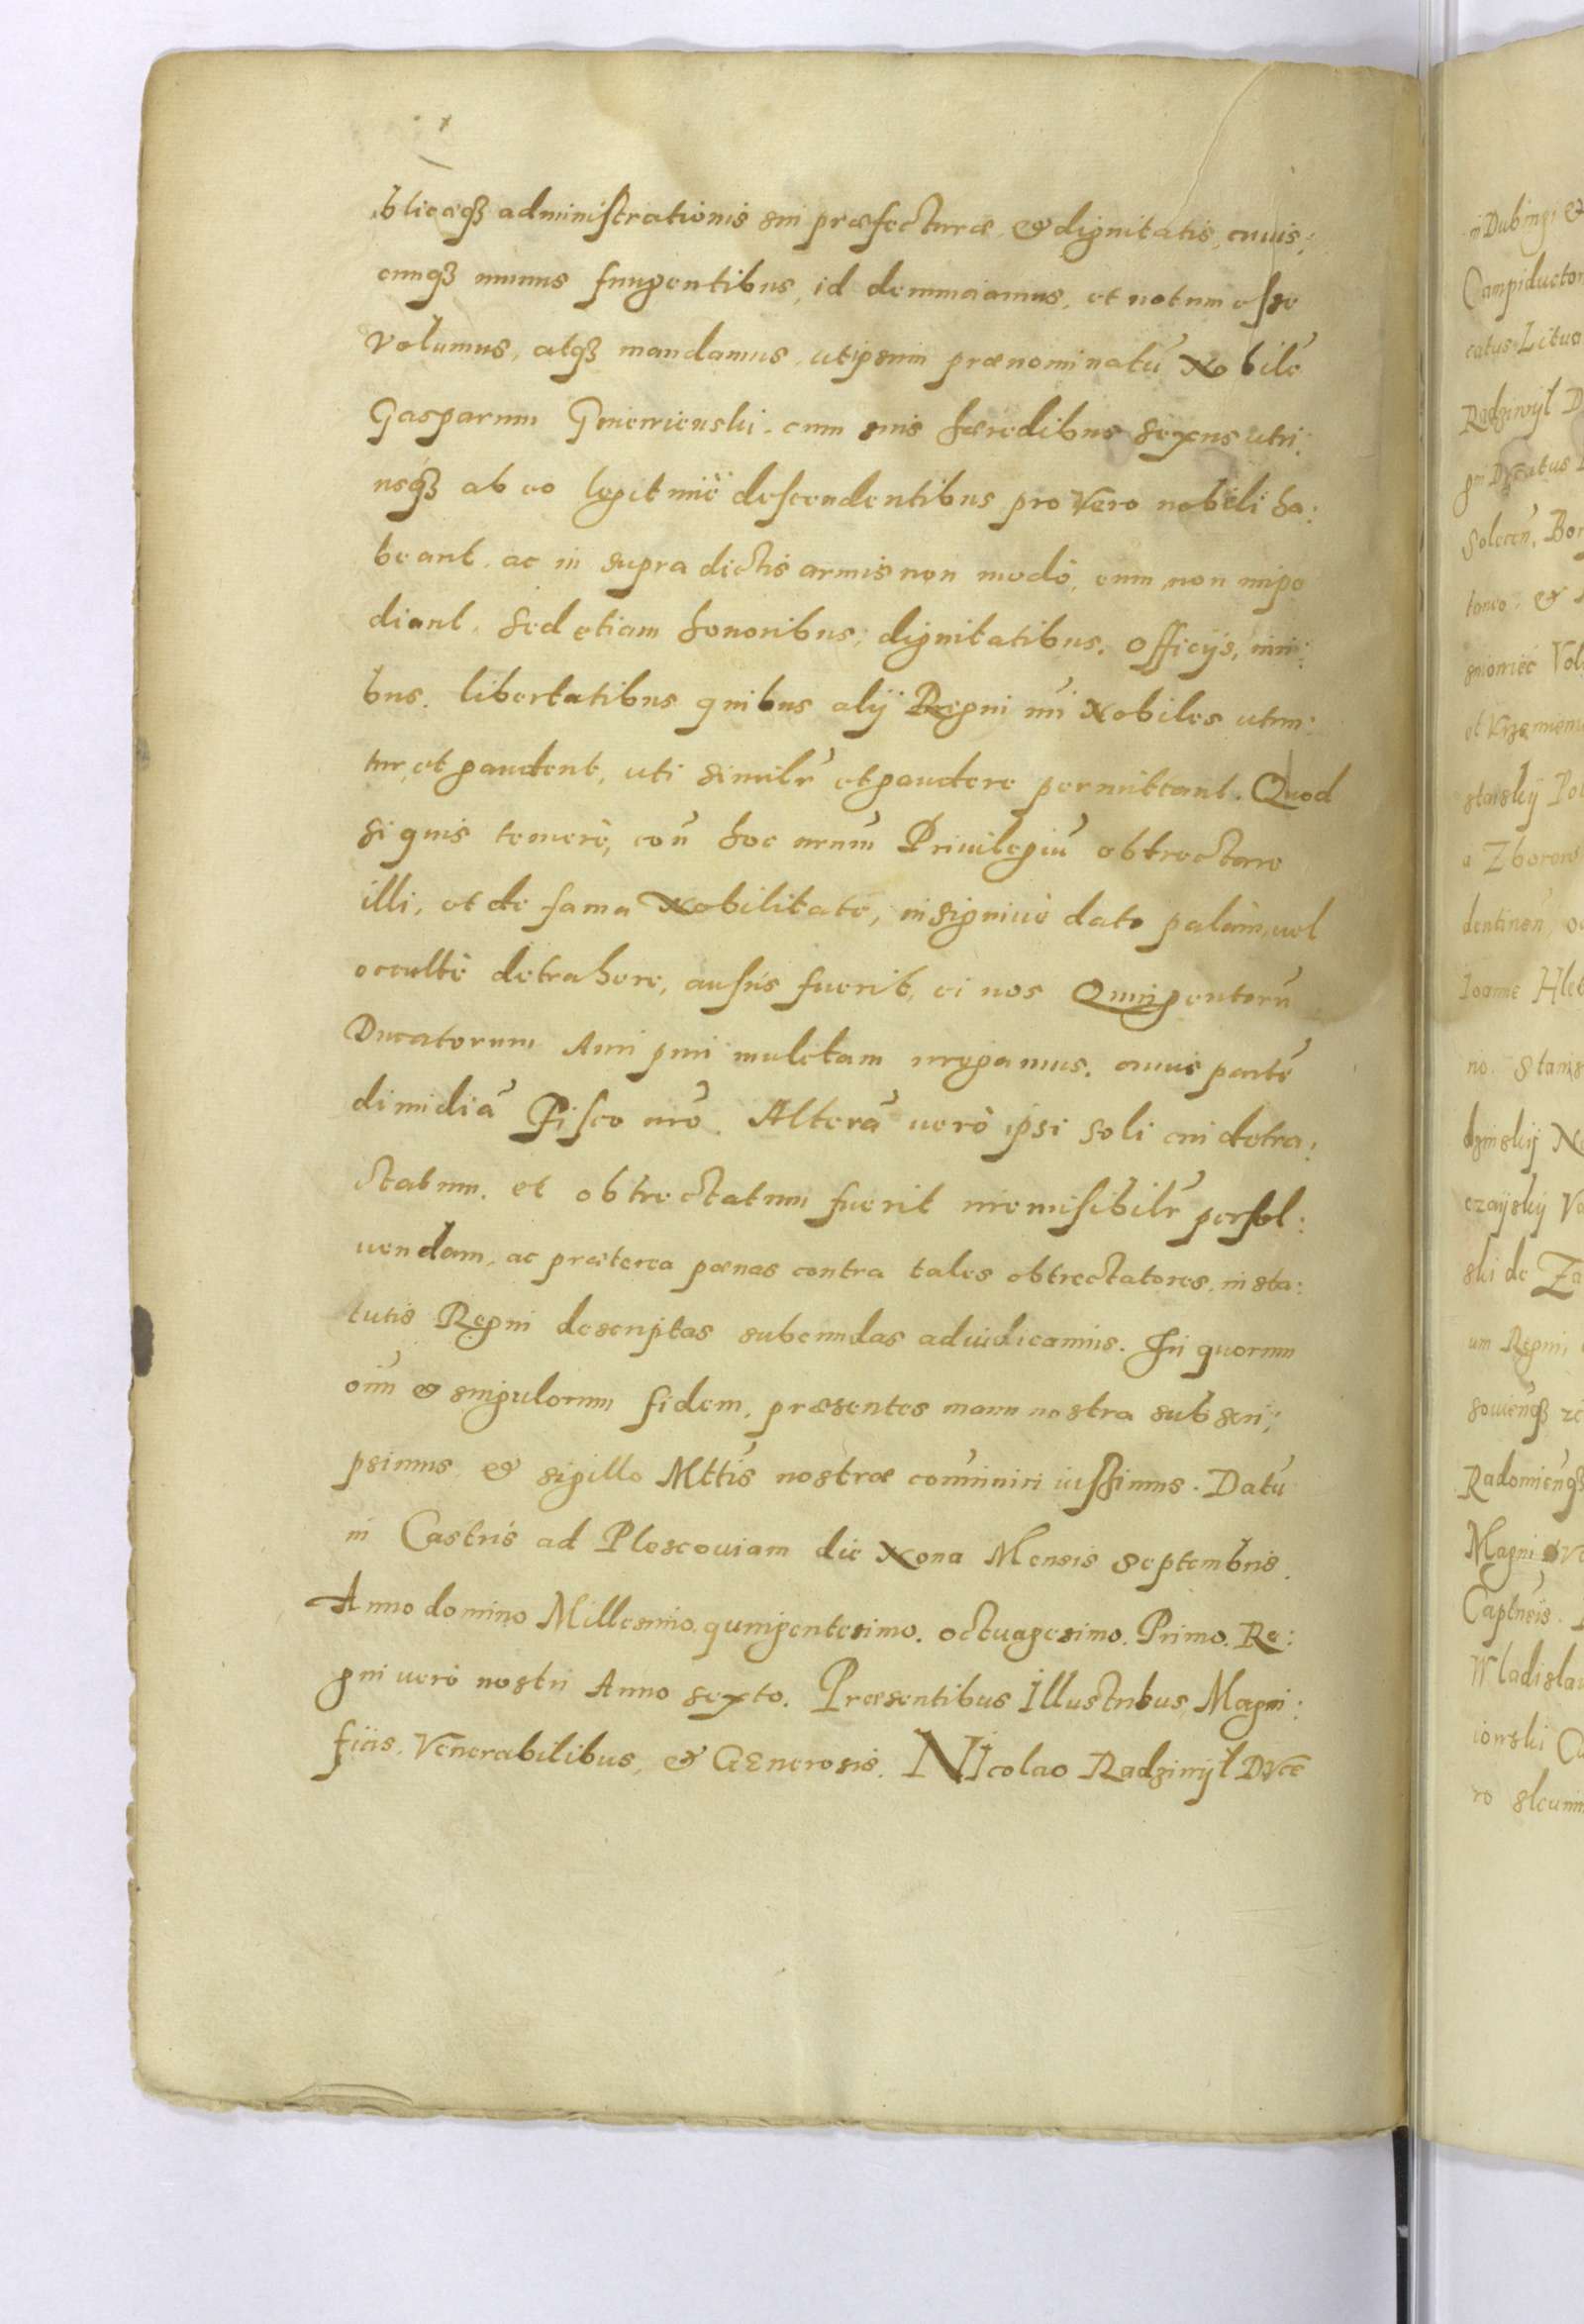 blicæq₃ administrationis sui præfecturæ & dignitatis, cuius;
cunq₃ munus fungentibus, id denunciamus, et notum esse
volumus, atq₃ mandamus, ut ipsum prænominatũ Nobilẽ
Gasparum cum suis hæredibus sexus utri:
usq₃ ab eo legitimè descendentibus pro vero nobili ha:
beant. ac in supra dictis armis non modò, eum non impe
diant, sed etiam honoribus, dignitatibus. Officijs, iuri:
bus. libertatibus quibus alij Regni nr̃i Nobiles utun:
tur, et gaudent, uti similr̃ et gaudere permittant. Quod
si quis temerè, coñ hoc nrũm Privilegiũ obtrectare
illi, et de fama Nobilitate, insigniuè dato palàm, vel
occultè detrahere, ausus fuerit, ei nos Quingentorũ
Ducatorum Auri puri mulctam irrogamus. cuius partẽ
dimidiã Fisco nr̃o. Alterã verò ipsi soli cui detra:
ctatum. et obtrectatum fuerit irremisibilr̃ persol:
uendam, ac præterea pœnas contra tales obtrectatores, in sta:
tutis Regni descriptas subeundas adiudicamus. In quorum
oĩm & singulorum fidem, præsentes manu nostra subscri;
psimus, & sigillo Mttis nostræ com̃uniri iussimus. Datũ
in Castris ad Plescouiam die Nona Mensis Septembris.
Anno domino Millesimo, quingentesimo. octuagesimo. Primo. Re:
gni verò nostri Anno sexto. Præsentibus Illustribus Magni:
ficis, Venerabilibus, & GEnerosis. NIcolao Radziwył DVce
in Dubingi &
Campiductor
catus Litua
Radziwył D
Solecen̄, Bor
et Krzemien
a Zborow
Ioanne Hleb
no. Stanis
um Regni,
Radomien̄q₃
Magni
Wladisla